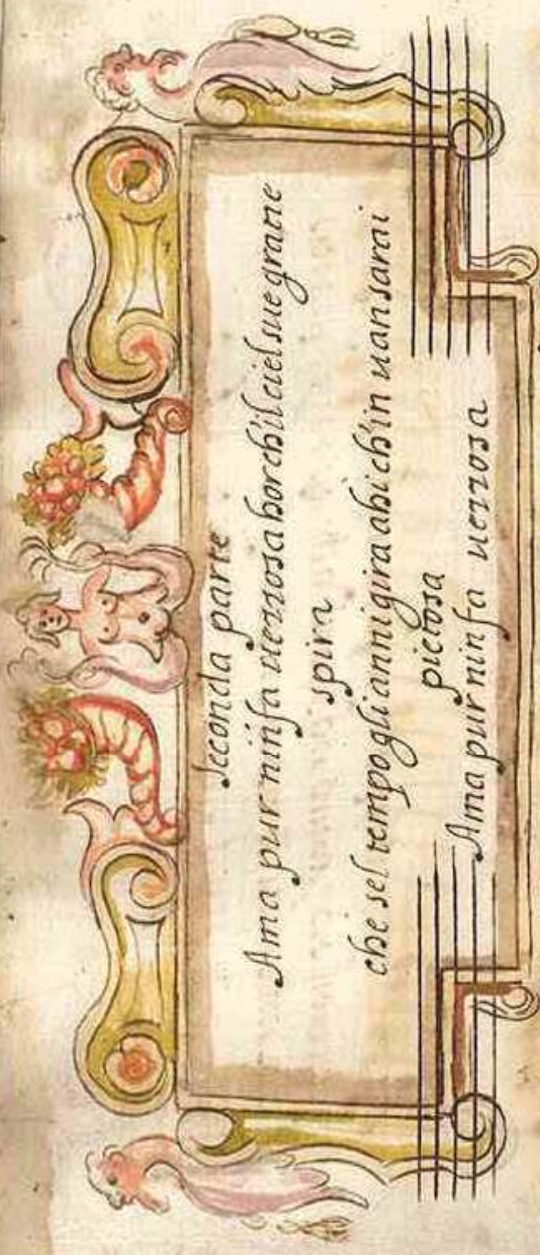 seconda parte
Ama pur ninfa uezzosa hor ch'il ciel sue gratie
spira
che sel tempo gli anni gira ahi ch'in uan sarai
pietosa
Ama pur ninfa uezzosa